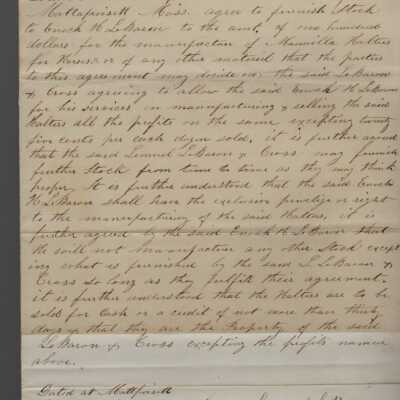 Mattapoisett Mass. agree to furnish Stock
to Enoch H LeBaron to the amt. of one hundred
dollars for the manufacture of Mannilla Halters
for Horses or of any other material that the parties
to this agreement may decide on the said LeBaron
& Cross agreeing to allow the said Enoch H LeBaron
for his services in manufacturing & selling the said
Halters all the profits on the same excepting twenty
five cents per each dozen sold. it is further agreed
that the said Lemuel LeBaron & Cross may furnish
further Stock from time to time as they may think
proper It is further understood that the said Enoch
H LeBaron shall have the exclusive privelige or right
to the manufacturing of the said Halters, it is
further agreed by the said Enoch H LeBaron that
He will not manufacture any other Stock except
ing what is furnished by the said L LeBaron &
Cross so long as they fulfill their agreement.
it is further understood that the Halters are to be
sold for Cash or a credit of not more than thirty
days & that they are the Property of the said
LeBaron & Cross excepting the profits named
above.
Dated at Mattpoisett